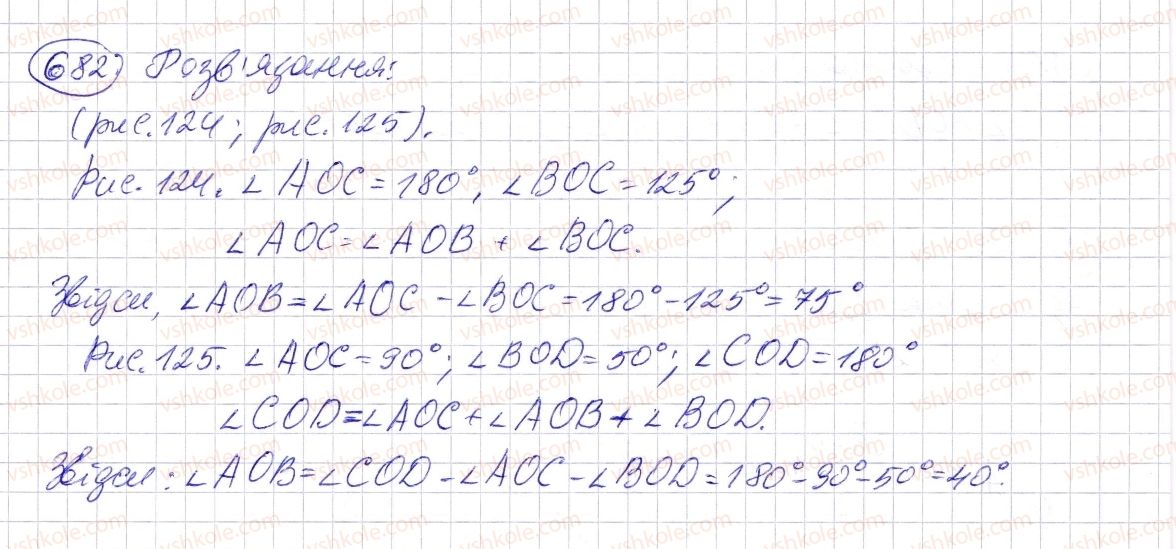 682) Розв'язання:
(рис. 124; рис. 125).
Рис. 124. ∠AOC = 180°, ∠BOC = 125°;
∠AOC = ∠AOB + ∠BOC.
Звідси, ∠AOB = ∠AOC - ∠BOC = 180° - 125° = 75°
Рис. 125. ∠AOC = 90°; ∠BOD = 50°; ∠COD = 180°
∠COD = ∠AOC + ∠AOB + ∠BOD.
Звідси: ∠AOB = ∠COD - ∠AOC - ∠BOD = 180° - 90° - 50° = 40°.